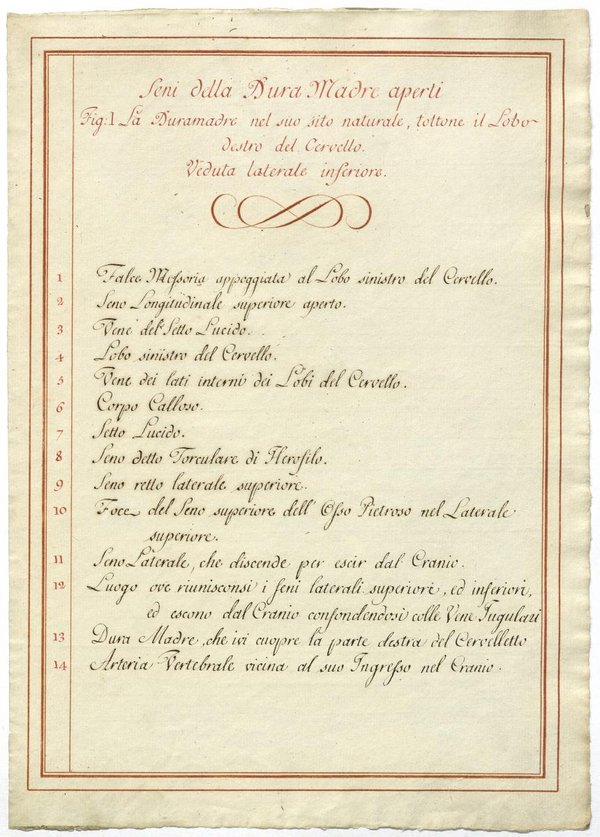 Seni della Dura Madre aperti
Fig: 1 La Duramadre nel suo sito naturale, toltone il Lobo
destro del Cervello.
Veduta laterale inferiore.
1 Falce Messoria appoggiata al Lobo sinistro del Cervello.
2 Seno Longitudinale superiore aperto.
3 Vene del Setto Lucido.
4 Lobo sinistro del Cervello.
5 Vene dei lati interni dei Lobi del Cervello.
6 Corpo Calloso.
7 Setto Lucido.
8 Seno detto Torculare di Herofilo.
9 Seno retto laterale superiore.
10 Foce del Seno superiore dell' Osso Pietroso nel Laterale
superiore.
11 Seno Laterale, che discende per escir dal Cranio.
12 Luogo ove riunisconsi i seni laterali superiore, ed inferiori,
ed escono dal Cranio confondendosi colle Vene Jugulari
13 Dura Madre, che ivi cuopre la parte destra del Cervelletto
14 Arteria Vertebrale vicina al suo Ingresso nel Cranio.